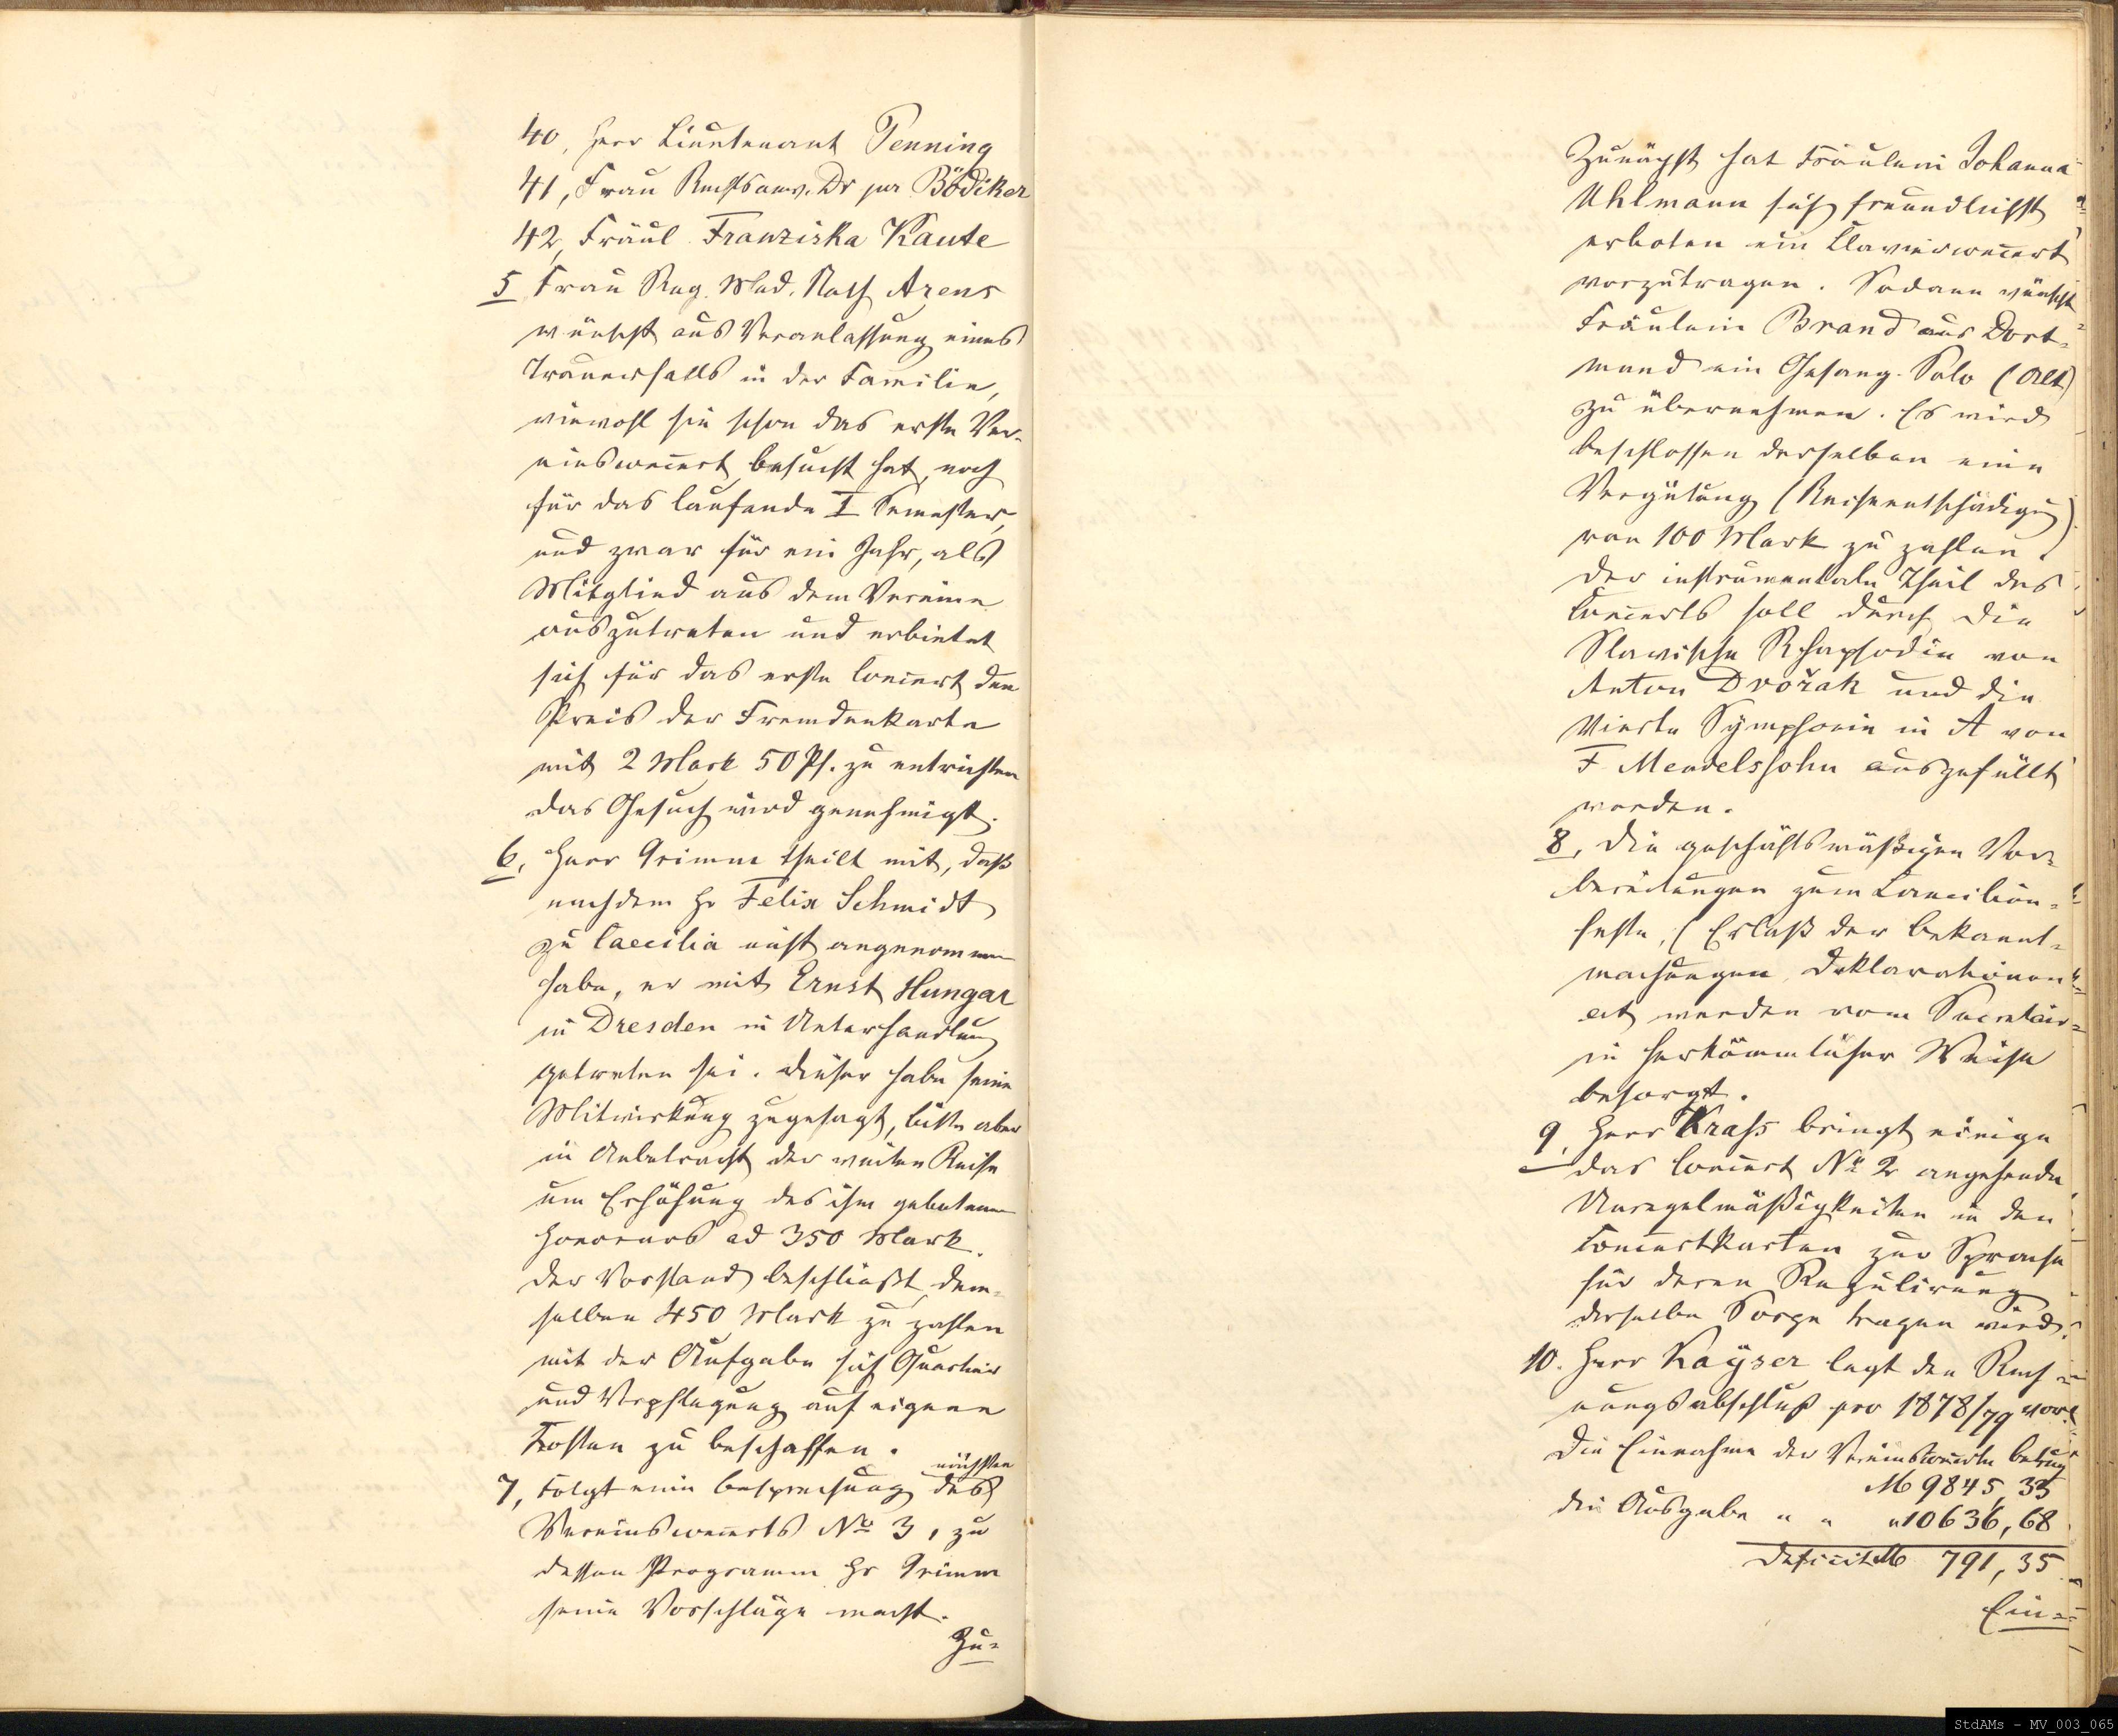 40, Herr Lieutenant Penning
41, Frau Rechtsanw. Dr jur Bödiker
42, Fräul. Franziska Kaute
5 Frau Reg. Med. Rath Arens
wünscht aus Veranlassung eines
Trauerfalls in der Familie,
wiewohl sie schon das erste Ver-
einsconcert besucht hat, noch
für das laufende I Semester,
und zwar für ein Jahr, als
Mitglied aus dem Vereine
auszutreten und erbietet
sich für das erste Concert den
Preis der Fremdenkarte
mit 2 Mark 50 Pf. zu entrichten
das Gesuch wird genehmigt.
6, Herr Grimm theilt mit, daß
nachdem Hr Felix Schmidt
zu Caecilia nicht angenommen
habe, er mit Ernst Hungar
in Dresden in Unterhandlung
getreten sei. Dieser habe seine
Mitwirkung zugesagt, bitte aber
in Anbetracht der weiten Reise
um Erhöhung des ihm gebotenen
Honorars ad 350 Mark.
Der Vorstand beschließt dem-
selben 450 Mark zu zahlen
mit der Aufgabe sich Quartier
und Verpflegung auf eigene
Kosten zu beschaffen.
7, Folgt eine Besprechung des nächsten
Vereinsconcerts No 3, zu
dessen Programm Hr Grimm
seine Vorschläge macht.
Zu-
Zunächst hat Fräulein Johanna
Uhlmann sich freundlichst
erboten ein Clavierconcert
vorzutragen. Sodann wünscht
Fräulein Brand aus Dort-
mund ein Gesang-Solo (Alt)
zu übernehmen. Es wird
beschlossen derselben eine
Vergütung (Reiseentschädigung)
von 100 Mark zu zahlen.
Der instrumentale Theil des
Concerts soll durch die
Slavische Rhapsodie von
Anton Dvořak und die
Vierte Symphonie in A von
F. Mendelssohn ausgefüllt
werden.
8, Die geschäftsmäßigen Vor-
bereitungen zum Caecilien-
feste, (Erlaß der Bekannt-
machungen Deklarationen
ect werden vom Secretair
in herkömmlicher Weise
besorgt.
9, Herr Krass bringt einige
das Concert No 2 angehende
Unregelmäßigkeiten in den
Concertkarten zur Sprache
für deren Regulirung
derselbe Sorge tragen wird.
10. Herr Kayser legt den Rech-
nungsabschluß pro 1878/79 vor.
Die Einnahme der Vereinsconcerte betrug
M 9845,33
die Ausgabe " " " 10636,68
Deficit M 791,35
Ein-
StdAMs - MV_003_065